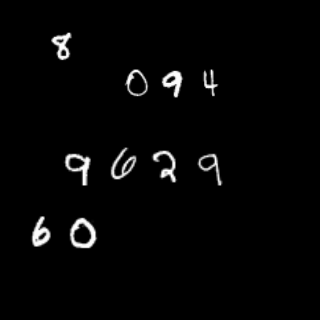 8
094
9629
60